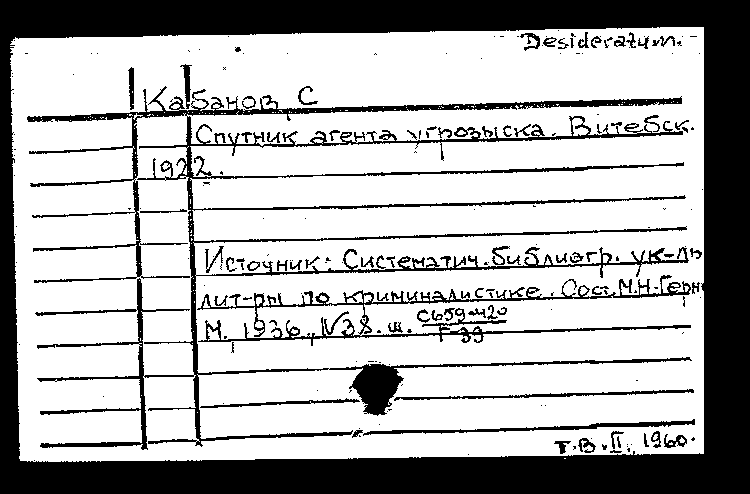 Desideratum.
Кабанов, С
Спутник агента угрозыска. Витебск.
1922.
Источник: Систематич. библиогр. ук-ль
лит-ры по криминалистике. Сост. М.Н. Герн
М., 1936, №38. ш. С659-420
Г-39
Т.В. II. 1960.